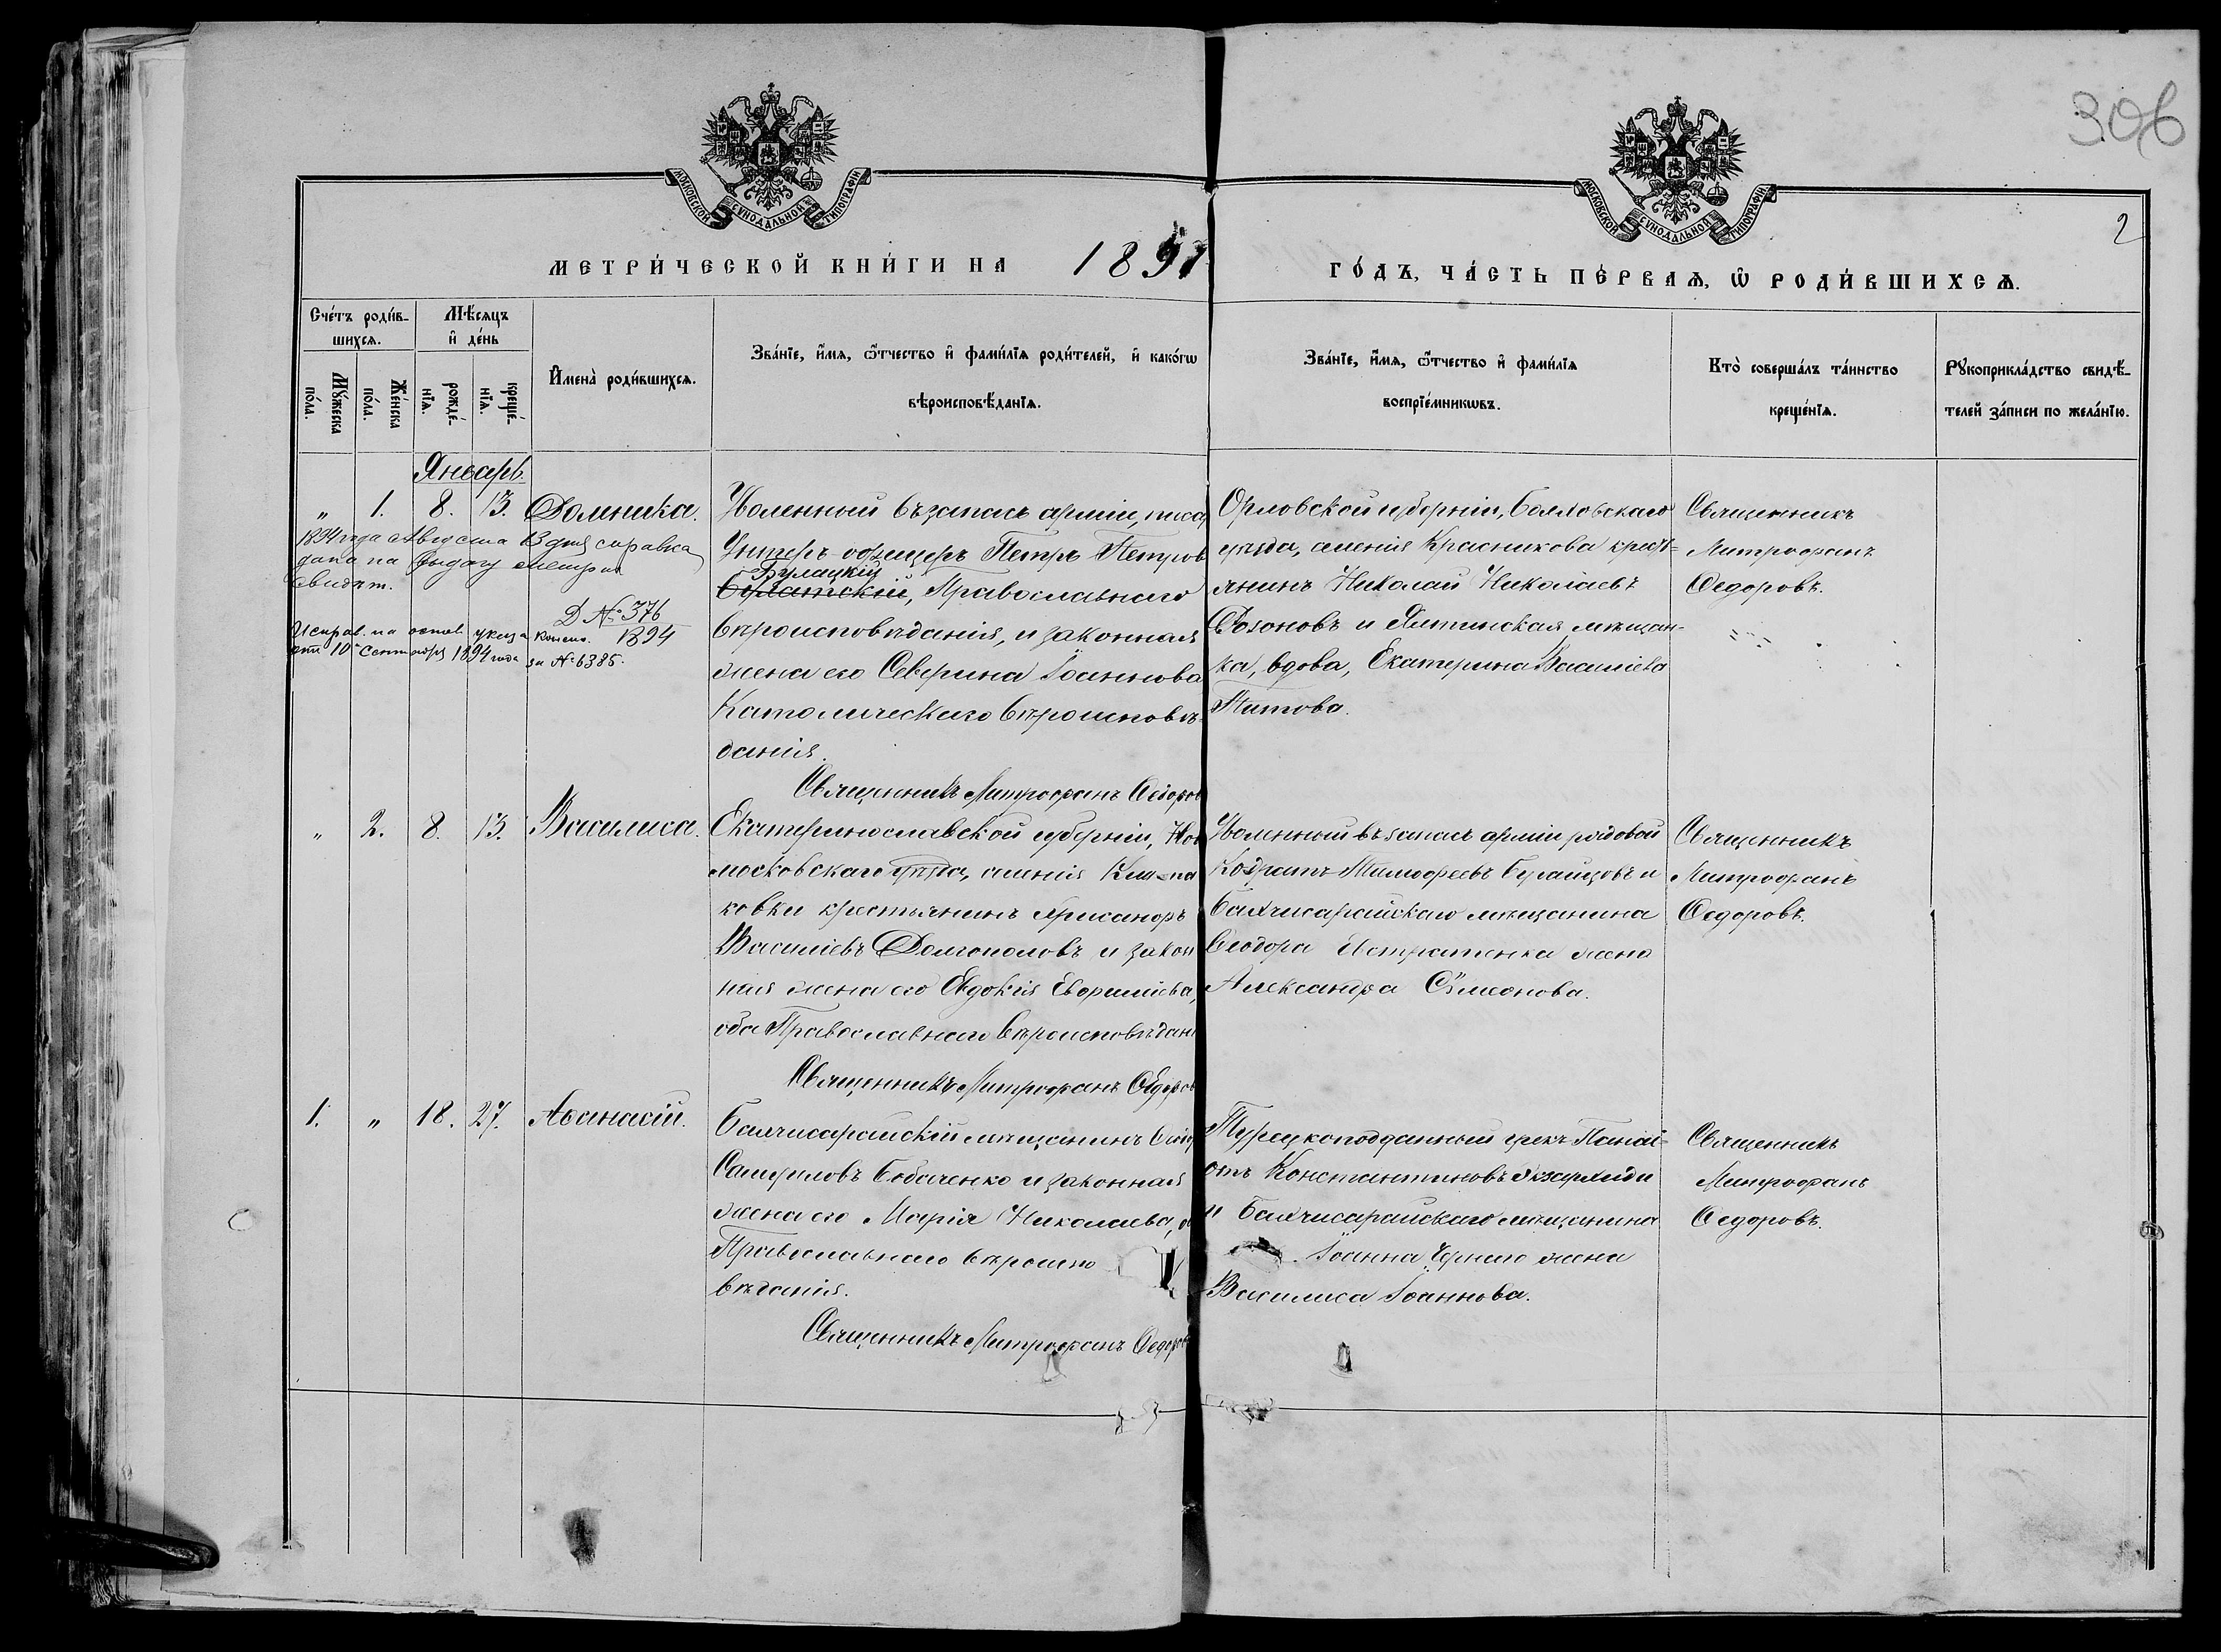 306
2
МОСКОВСКОЙ СѴНОДАЛЬНОЙ ТИПОГРАФІИ
МОСКОВСКОЙ СѴНОДАЛЬНОЙ ТИПОГРАФІИ
МЕТРИ́ЧЕСКОЙ КНИ́ГИ НА 1891
ГО́ДЪ, ЧА́СТЬ ПЕ́РВАѦ, Ѡ РОДИ́ВШИХСѦ.
Сче́тъ роди́в-
шихсѧ.
Мꙋ́жеска по́ла.
Же́нска по́ла.
Мѣ́сяцъ
и де́нь
рожде́-нїѧ.
креще́-нїѧ.
Имена̀ роди́вшихсѧ.
Зва́нїе, и́мѧ, ѻ́тчество и фами́лїѧ роди́телей, и како́гѡ
вѣроисповѣ́данїѧ.
Зва́нїе, и́мѧ, ѻ́тчество и фами́лїѧ
воспрїе́мникѡвъ.
Кто̀ соверша́лъ та́инство
креще́нїѧ.
Рꙋкоприкла́дство свидѣ́-
телей за́писи по жела́нїю.
Январь.
" 1. 8. 13. Домника.
1894 года Августа 13 дня справка
дана на выдачу метрич
свидѣт.
Д № 376
1894
Исправ. на основ. указа Консис.
отъ 10 Сентября 1894 года за № 6385.
Уволенный въ запасъ арміи, писа
Унтеръ-офицеръ Петръ Петров
Булацкій
Православнаго
вѣроисповѣданія, и законная
жена его Северина Іоаннова
Католическаго вѣроисповѣ-
данія.
Священникъ Митрофанъ Ѳедоров
Орловской губерніи, Болховскаго
уѣзда, имѣнія Красникова крест-
янинъ Николай Николаевъ
и Ялтинская мѣщан-
ка, вдова, Екатерина Василіева
Титова.
Священникъ
Митрофанъ
Ѳедоровъ.
" 2. 8. 13. Василиса.
Екатеринославской губерніи, Нов
московскаго уѣзда, имѣнія
ковки крестьянинъ
Василіевъ Долгополовъ и закон
ная жена его Евдокія Евфиміева,
оба Православнаго вѣроисповѣдані
Священникъ Митрофанъ Ѳедоров
Уволенный въ запасъ арміи рядовой
Кодратъ Тимофеевъ и
Бахчисарайскаго мѣщанина
Ѳеодора жена
Александра Сѵмеонова.
Священникъ
Митрофанъ
Ѳедоровъ.
1. " 18. 27. Аѳанасій.
Бахчисарайскій мѣщанинъ
Самуиловъ и законная
жена его Марія Николаева,
Православнаго вѣроиспо
вѣданія.
Священникъ Митрофанъ Ѳедоров
Турецкоподданный грекъ Панаі-
отъ Константиновъ
и Бахчисарайскаго мѣщанина
Іоанна Чернаго жена
Василиса Іоаннова.
Священникъ
Митрофанъ
Ѳедоровъ.